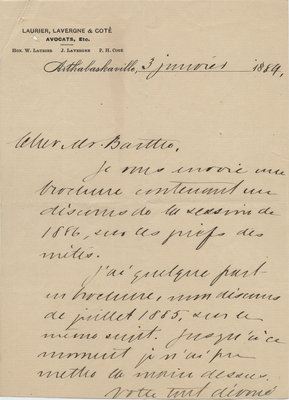 LAURIER, LAVERGNE & COTÉ
AVOCATS, Etc.
HON. W. LAURIER J. LAVERGNE P. H. COTÉ
Arthabaskaville, 3 janvier 1889.
Cher Mr. Barthe,
Je vous envoie une
brochure contenant un
discours de la session de
1886, sur les griefs des
métis.
J'ai quelque part
en brochure, mon discours
de juillet 1885, sur le
même sujet. Jusqu'à ce
moment je n'ai pu
mettre la main dessus.
Votre tout dévoué